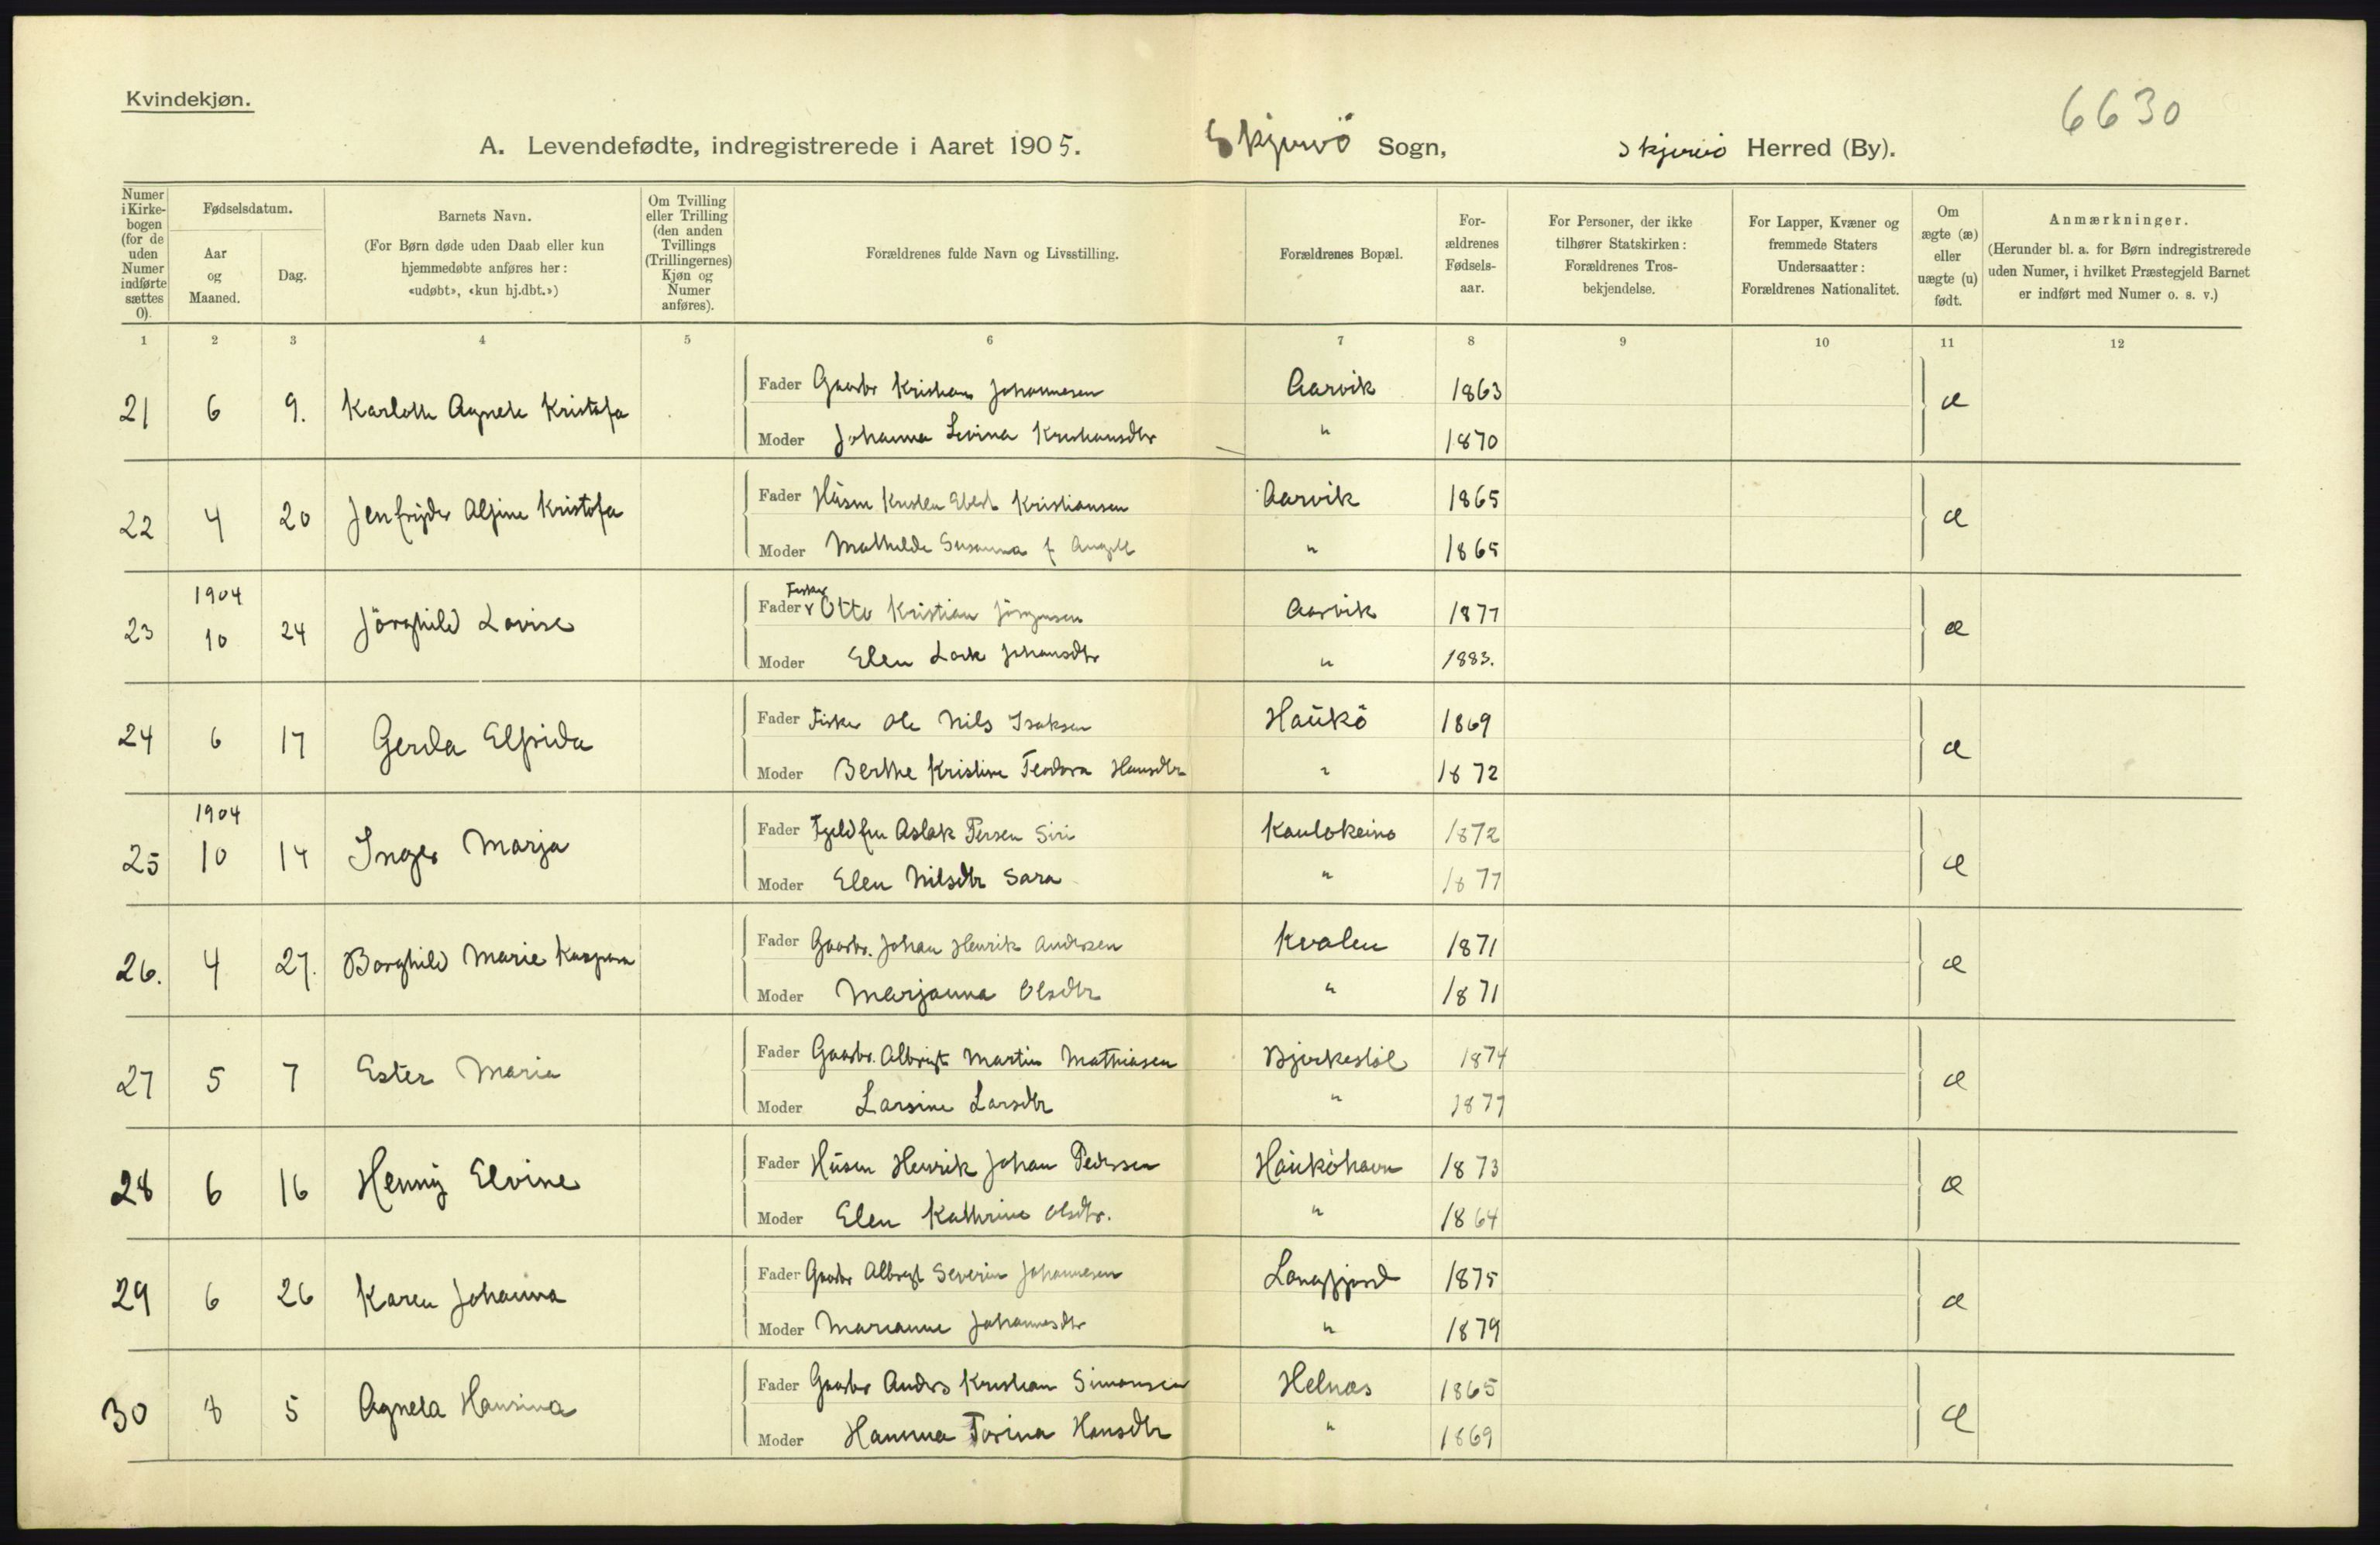 Kvindekjøn.
6630
A. Levendefødte, indregistrerede i Aaret 1905. Skjervö Sogn, Skjervö Herred (By).
Numer i Kirkebogen (for de uden Numer indførte sættes 0).
Fødselsdatum.
Aar og Maaned.
Dag.
Barnets Navn.
(For Børn døde uden Daab eller kun hjemmedøbte anføres her: «udøbt», «kun hj.dbt.»)
Om Tvilling eller Trilling (den anden Tvillings (Trillingernes) Kjøn og Numer anføres).
Forældrenes fulde Navn og Livsstilling.
Forældrenes Bopæl.
For-ældrenes Fødsels-aar.
For Personer, der ikke tilhører Statskirken: Forældrenes Tros-bekjendelse.
For Lapper, Kvæner og fremmede Staters Undersaatter: Forældrenes Nationalitet.
Om ægte (æ) eller uægte (u) født.
Anmærkninger.
(Herunder bl. a. for Børn indregistrerede uden Numer, i hvilket Præstegjeld Barnet er indført med Numer o. s. v.)
1 2 3 4 5 6 7 8 9 10 11 12
21 6 9. Karlotte Agnete Kristofa Fader Gaarbr Kristian Johannesen Aarvik 1863 æ
Moder Johanna Levina Kristiansdtr " 1870
22 4 20 Jenfryder Alfine Kristofa Fader Husm Kristen Ebert Kristiansen Aarvik 1865 æ
Moder Mathilde Susanna f Angell " 1865
1904
23 10 24 Jörghild Lovise Fader Fisker Otto Kristian Jörgensen Aarvik 1877 æ
Moder Elen Johansdtr " 1883.
24 6 17 Gerda Elfrida Fader Fisker Ole Nils Isaksen Haukö 1869 æ
Moder Berthe Kristine Teodora Hansdtr " 1872
1904
25 10 14 Inger Marja Fader Fjeldfin Aslak Persen Siri Kautokeino 1872 æ
Moder Elen Nilsdtr Sara " 1877
26. 4 27. Borghild Marie Kaspara Fader Gaarbr. Johan Henrik Andersen Kvalen 1871 æ
Moder Marjanna Olsdtr " 1871
27 5 7 Ester Maria Fader Gaarbr. Albrigt Martin Mathiasen 1874 æ
Moder Larsine Larsdtr " 1877
28 6 16 Henny Elvine Fader Husm Henrik Johan Pedersen Hauköhavn 1873 æ
Moder Elen Kathrine Olsdtr. " 1864
29 6 26 Karen Johanna Fader Gaarbr Albrigt Severin Johannesen Langfjord 1875 æ
Moder Marianne Johannesdtr " 1879
30 8 5 Agneta Hansina Fader Gaarbr Anders Kristian Simonsen Helnæs 1865 æ
Moder Hanna Torina Hansdtr " 1869